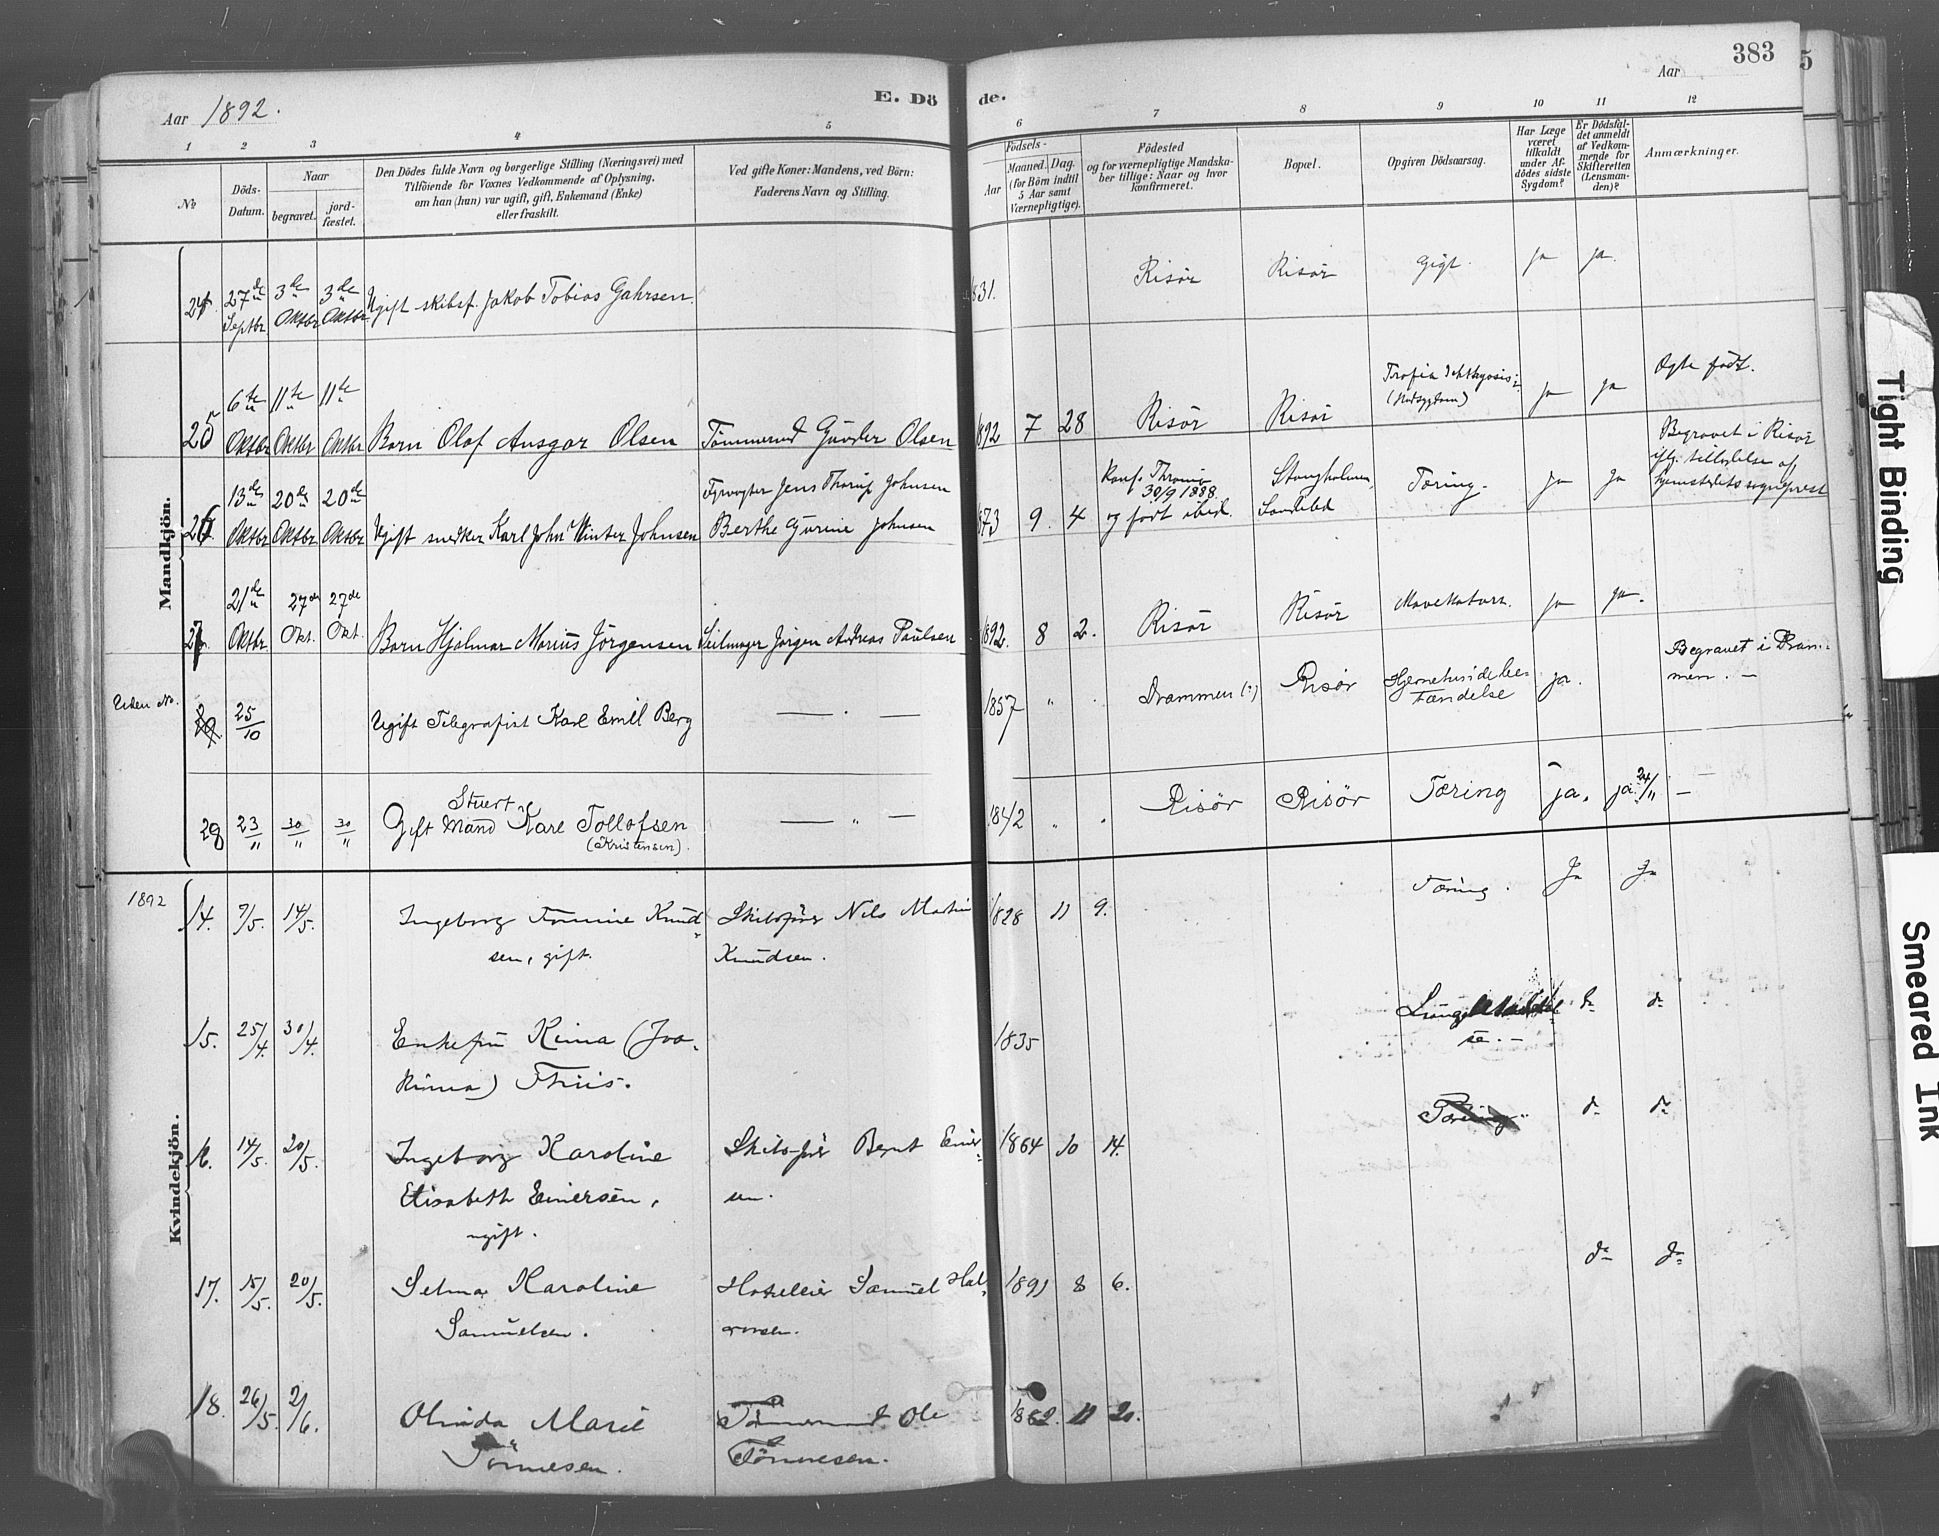 383
5
Aar 1892.
E. Dö
de.
Aar
1 2 3 4 5 6 7 8 9 10 11 12
№
Döds-
Datum.
Naar
begravet.
jord-
fæstet.
Den Dödes fulde Navn og borgerlige Stilling (Næringsvei) med
Tilföiende for Voxnes Vedkommende af Oplysning,
om han (hun) var ugift, gift, Enkemand (Enke)
eller fraskilt.
Ved gifte Koner: Mandens, ved Börn:
Faderens Navn og Stilling.
Fødsels-
Aar
Maaned. Dag.
(for Börn indtil
5 Aar samt
Værnepligtige).
Födested
og for værnepligtige Mandska-
ber tillige: Naar og hvor
konfirmeret.
Bopæl.
Opgiven Dödsaarsag.
Har Læge
været
tilkaldt
under Af-
dödes sidste
Sygdom?
Er Dödsfal-
det anmeldt
af Vedkom-
mende for
Skifteretten
(Lensman-
den)?
Anmærkninger.
Mandkjön.
24. 27de Septbr 3de Oktbr 3die Oktbr Ugift skibsf. Jakob Tobias Gahrsen 831. Risör Risör Gigt. ja ja.
25 6te Oktbr 11te Oktbr 11te Oktbr Barn Olaf Ansgar Olsen Tømmermd Gunder Olsen 892 7 28 Risör Risör
ja ja Ægte født.
26 13de Oktbr 20de Oktbr 20de Oktbr Ugift snedker Karl John Winter Johnsen
Fyrvogter Jens Thorup Johnsen
Berthe Gurine Johnsen
873 9. 4
Konf. Thromø
30/9 1888
og født ibid.
Stangholmen,
Søndeled
Tæring. ja ja
Begravet i Risör
27 21de Oktbr 27de Okt. 27de Okt. Barn Hjalmar Marius Jörgensen Seilmager Jörgen Andreas Paulsen 892. 8 2. Risör Risör Mavekatarr. ja ja.
Uden No. 25/10 Ugift Telegrafist Karl Emil Berg — . — 1857 " . Drammen (?) Risör
Hjernehindebe-
tændelse
ja.
Begravet i Dram-
men. —
28 23/11 30/11 30/11
Stuert
Gift Mand Karl Tollofsen
(Kristensen).
— " — 1842 " . Risör Risör Tæring ja. ja. 24/11 —
Kvindekjön.
1892
14. 7/5. 14/5. Ingeborg Tomine Knud-
sen, gift.
Skibsfører Nils Martin
Knudsen.
1828 11 9. Tæring. Ja Ja
15. 25/4. 30/4. Enkefru Kima (Joa-
kima) Thiis.
1835
se. — do do
16. 14/5. 20/5. Ingeborg Karoline
Elisabeth Einersen,
ugift.
Skibsfører Bernt Einer-
sen.
1864 10 14. Tæring do do
17. 15/5. 20/5. Selma Karoline
Samuelsen.
Samuel Hal-
vorsen.
1891 8 6. do do
18. 26/5. 2/6. Olinda Marie
Tönnesen.
Tømmermand Ole
Tönnesen.
1862. 11 20.
Tight Binding
Smeared Ink